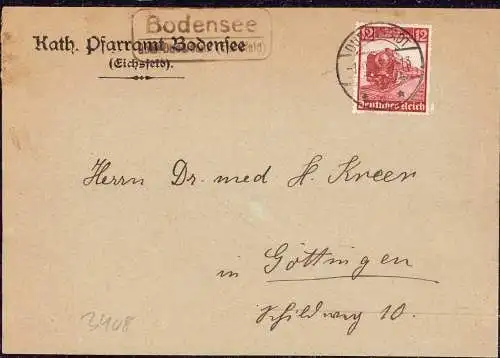 Bodensee
Kath. Pfarramt Bodensee
(Eichsfeld).
12 12
Deutsches Reich
Herrn Dr. med H. Kreer
in Göttingen
Schildweg 10.
3408